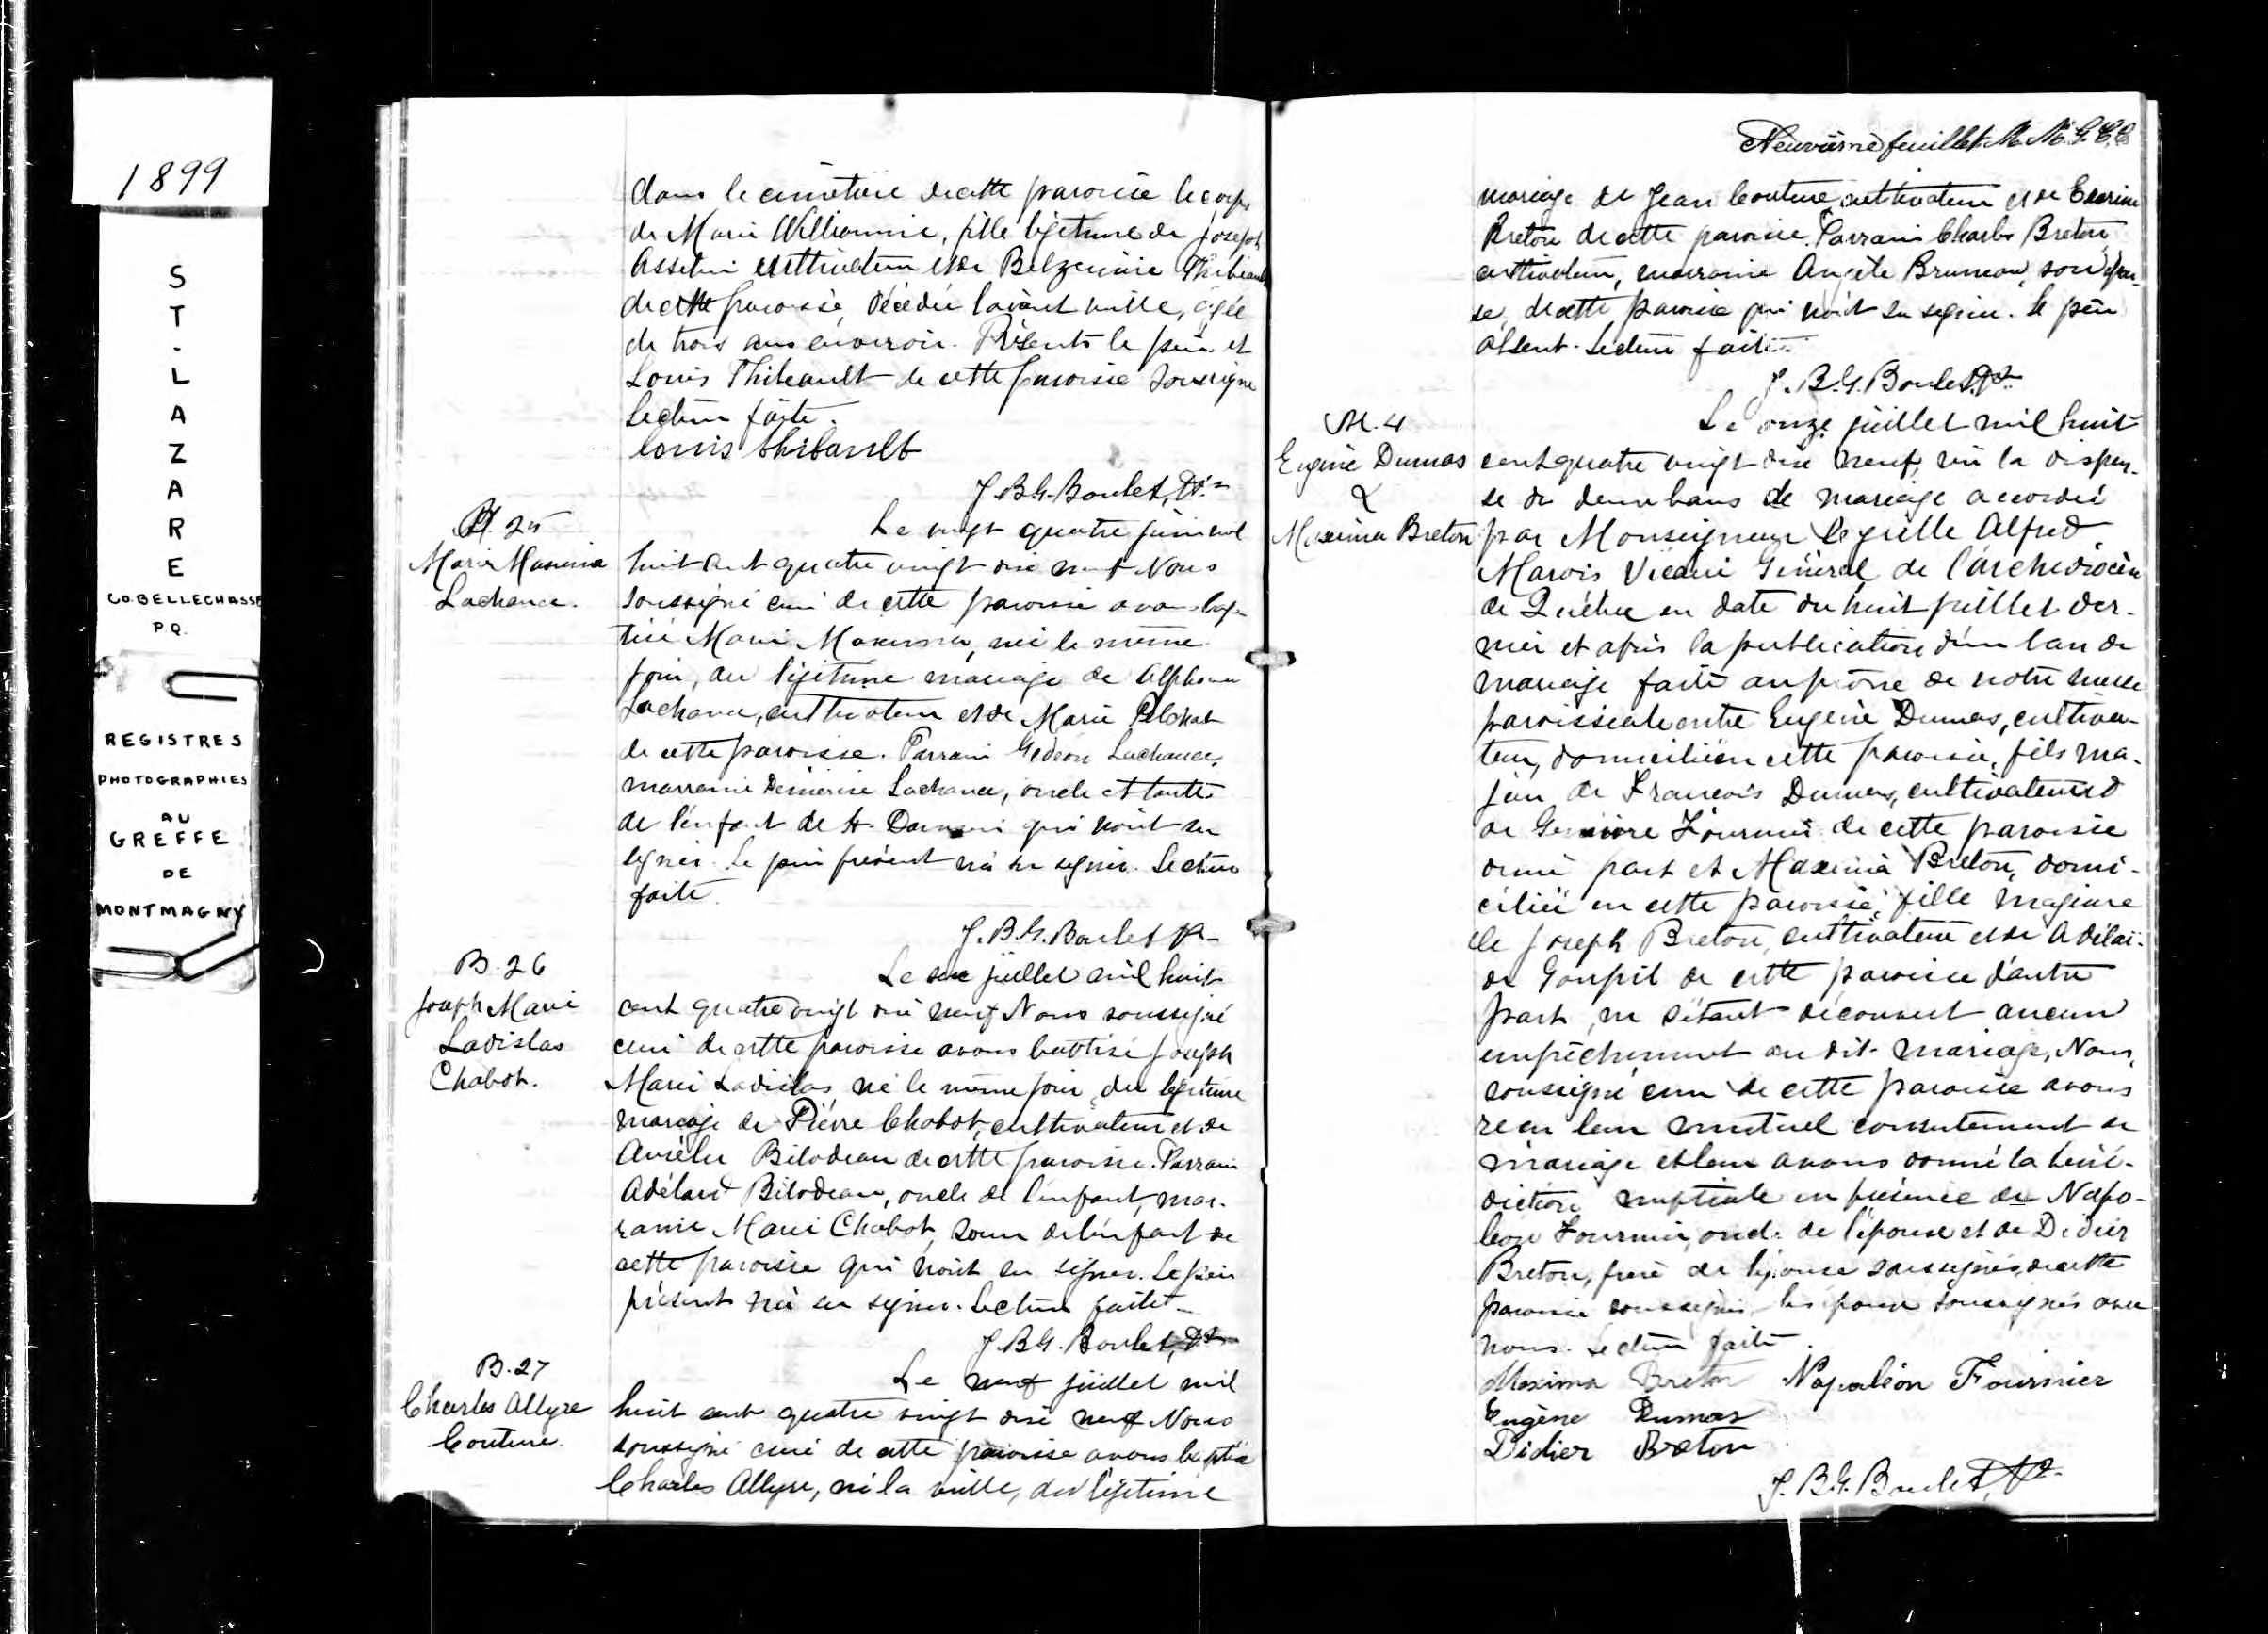 1899
ST-LAZARE
CO. BELLECHASSE
P.Q.
REGISTRES
PHOTOGRAPHIES
AU
GREFFE
DE
MONTMAGNY
dans le cimetière de cette paroisse le corps
de Marie Williamine, fille légitime de Joseph
Asselin cultivateur et de Belzemire Thibeault
de cette paroisse, décédée l'avant veille, âgée
de trois ans environ. Présents le père et
Louis Thibeault de cette paroisse soussigné
Lecture faite.
Louis Thibault
J.B.G. Boulet, Ptre
B. 25
Marie Maxima
Lachance.
Le vingt quatre juin mil
huit cent quatre vingt dix neuf Nous
soussigné curé de cette paroisse avons bap-
tisé Marie Maxima, née le même
jour, du légitime mariage de Alphonse
Lachance, cultivateur et de Marie
de cette paroisse. Parrain Gédéon Lachance,
marraine Lachance, oncle et tante
de l'enfant de St. Damien qui n'ont su
signer. Le père présent n'a su signer. Lecture
faite.
J.B.G. Boulet Ptre
B. 26
Joseph Marie
Ladislas
Chabot.
Le six juillet mil huit
cent quatre vingt dix neuf Nous soussigné
curé de cette paroisse avons baptisé Joseph
Marie Ladislas, né le même jour, du légitime
mariage de Pierre Chabot, cultivateur et de
Aurélie Bilodeau de cette paroisse. Parrain
Adélard Bilodeau, oncle de l'enfant, mar-
raine Marie Chabot, soeur de l'enfant de
cette paroisse qui n'ont su signer. Le père
présent n'a su signer. Lecture faite.
J.B.G. Boulet, Ptre
B. 27
Charles Allyre
Couture.
Le neuf juillet mil
huit cent quatre vingt dix neuf Nous
soussigné curé de cette paroisse avons baptisé
Charles Allyre, né la veille, du légitime
Neuvième feuillet
mariage de Jean Couture, cultivateur et de
Breton de cette paroisse. Parrain Charles Breton,
cultivateur, marraine Angèle Bruneau, son épou-
se, de cette paroisse qui n'ont su signer. Le père
absent. Lecture faite.
J.B.G. Boulet, Ptre
M. 4
Eugène Dumas
&
Maxima Breton
Le onze juillet mil huit
cent quatre vingt dix neuf, vu la dispen-
se de deux bans de mariage accordée
par Monseigneur Cyrille Alfred
Marois Vicaire Général de l'archidiocèse
de Québec en date du huit juillet der-
nier et après la publication d'un ban de
mariage faite au prône de notre messe
paroissiale entre Eugène Dumas, cultiva-
teur, domicilié en cette paroisse, fils ma-
jeur de François Dumas, cultivateur et
de Fournier de cette paroisse
d'une part et Maxima Breton, domi-
ciliée en cette paroisse, fille majeure
de Joseph Breton, cultivateur et de Adélaï-
de Goupil de cette paroisse d'autre
part, ne s'étant découvert aucun
empêchement au dit mariage, Nous,
soussigné curé de cette paroisse avons
reçu leur mutuel consentement de
mariage et leur avons donné la béné-
diction nuptiale en présence de Napo-
léon Fournier, oncle de l'épouse et de Didier
Breton, frère de l'épouse soussignés, de cette
paroisse soussignés, les époux soussignés avec
nous. Lecture faite.
Maxima Breton Napoléon Fournier
Eugène Dumas
Didier Breton
J.B.G. Boulet, Ptre